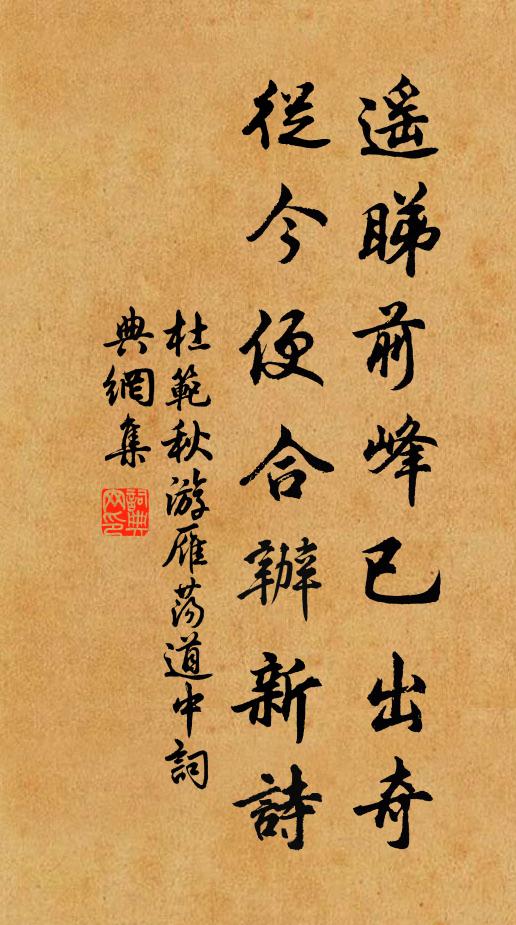 遥睇前峰已出奇
從今便合辦新詩
杜範秋游雁荡道中詞
典網集
詞典网印